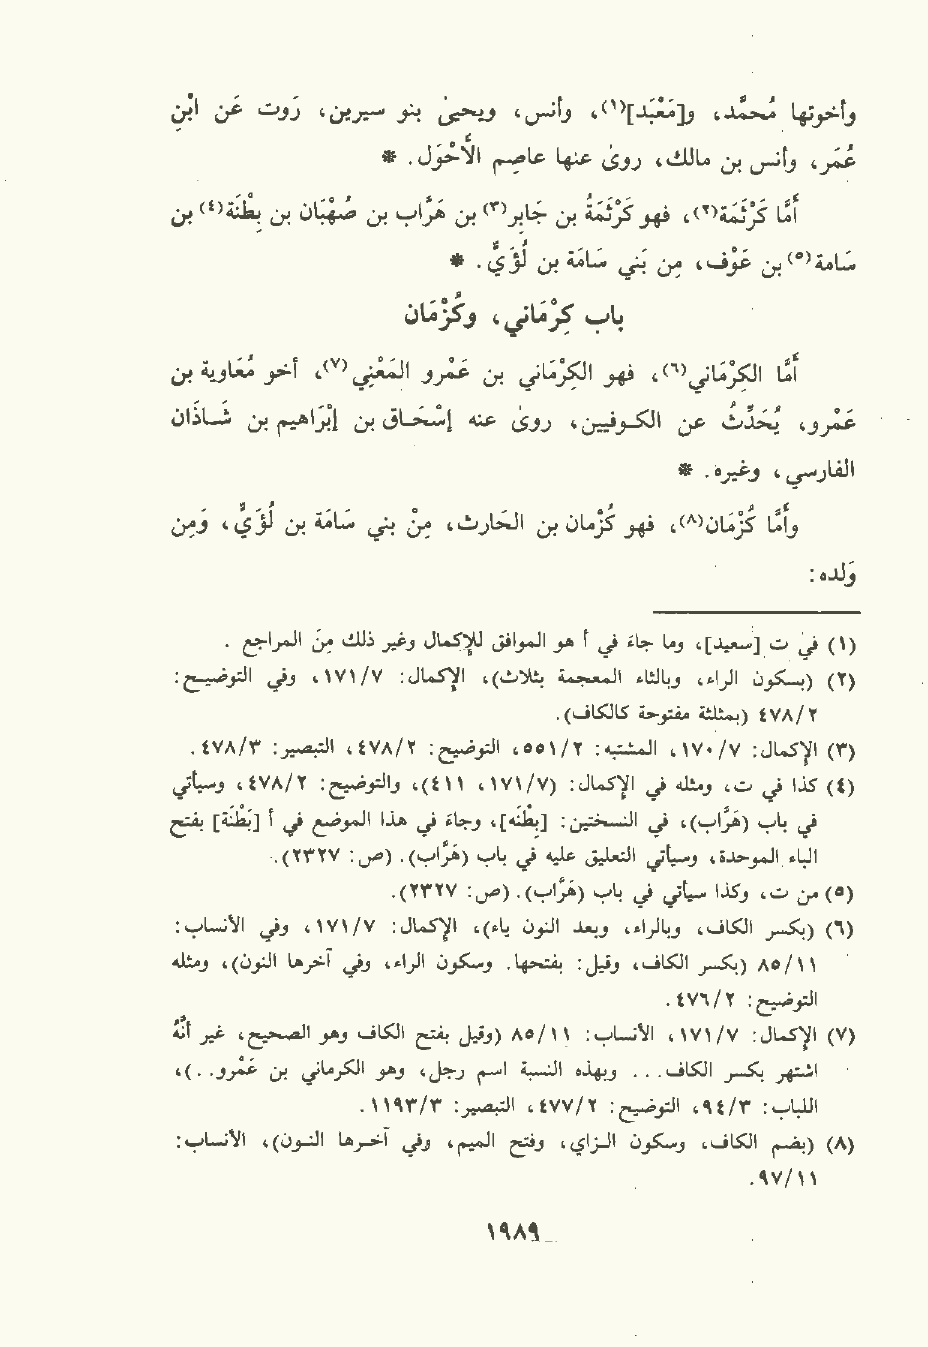 وأخوتها مُحمَّد، و[مَعْبَد]⁽¹⁾، وأنس، ويحيىٰ بنو سيرين، رَوت عَن ابْنِ
عُمَر، وأنس بن مالك، روىٰ عنها عاصِم الأَحْوَل. *
أَمَّا كَرْثَمَة⁽٢⁾، فهو كَرْثَمَةُ بن جَابِر⁽٣⁾ بن هَرَّاب بن صُهْبَان بن بِطْنَة⁽٤⁾ بن
سَامة⁽٥⁾ بن عَوْف، مِن بَني سَامَة بن لُؤَيٍّ. *
باب كِرْمَاني، وكُزْمَان
أَمَّا الكِرْمَاني⁽٦⁾، فهو الكِرْمَاني بن عَمْرو المَعْنِي⁽٧⁾، أخو مُعَاوية بن
عَمْرو، يُحَدِّثُ عن الكـوفيين، روىٰ عنه إسْحَـاق بن إبْرَاهيم بن شَـاذَان
الفارسي، وغيره. *
وأَمَّا كُزْمَان⁽٨⁾، فهو كُزْمان بن الحَارث، مِنْ بني سَامَة بن لُؤَيٍّ، وَمِن
وَلده:
(١) في ت [سعيد]، وما جاء في أ هو الموافق للإكمال وغير ذلك مِنَ المراجع.
(٢) (بسكون الراء، وبالثاء المعجمة بثلاث)، الإكمال: ١٧١/٧، وفي التوضيح:
٤٧٨/٢ (بمثلثة مفتوحة كالكاف).
(٣) الإكمال: ١٧٠/٧، المشتبه: ٥٥١/٢، التوضيح: ٤٧٨/٢، التبصير: ٤٧٨/٣.
(٤) كذا في ت، ومثله في الإكمال: (١٧١/٧، ٤١١)، والتوضيح: ٤٧٨/٢، وسيأتي
في باب (هَرَّاب)، في النسختين: [بِطْنَه]، وجاءَ في هذا الموضع في أ [بَطْنَة] بفتح
الباء الموحدة، وسيأتي التعليق عليه في باب (هَرَّاب). (ص: ٢٣٢٧).
(٥) من ت، وكذا سيأتي في باب (هَرَّاب). (ص: ٢٣٢٧).
(٦) (بكسر الكاف، وبالراء، وبعد النون ياء)، الإكمال: ١٧١/٧، وفي الأنساب:
٨٥/١١ (بكسر الكاف، وقيل: بفتحها. وسكون الراء، وفي آخرها النون)، ومثله
التوضيح: ٤٧٦/٢.
(٧) الإكمال: ١٧١/٧، الأنساب: ٨٥/١١ (وقيل بفتح الكاف وهو الصحيح، غير أَنَّهُ
اشتهر بكسر الكاف... وبهذه النسبة اسم رجل، وهو الكرماني بن عَمْرو..)،
اللباب: ٩٤/٣، التوضيح: ٤٧٧/٢، التبصير: ١١٩٣/٣.
(٨) (بضم الكاف، وسكون الـزاي، وفتح الميم، وفي آخـرها النـون)، الأنساب:
٩٧/١١.
١٩٨٩